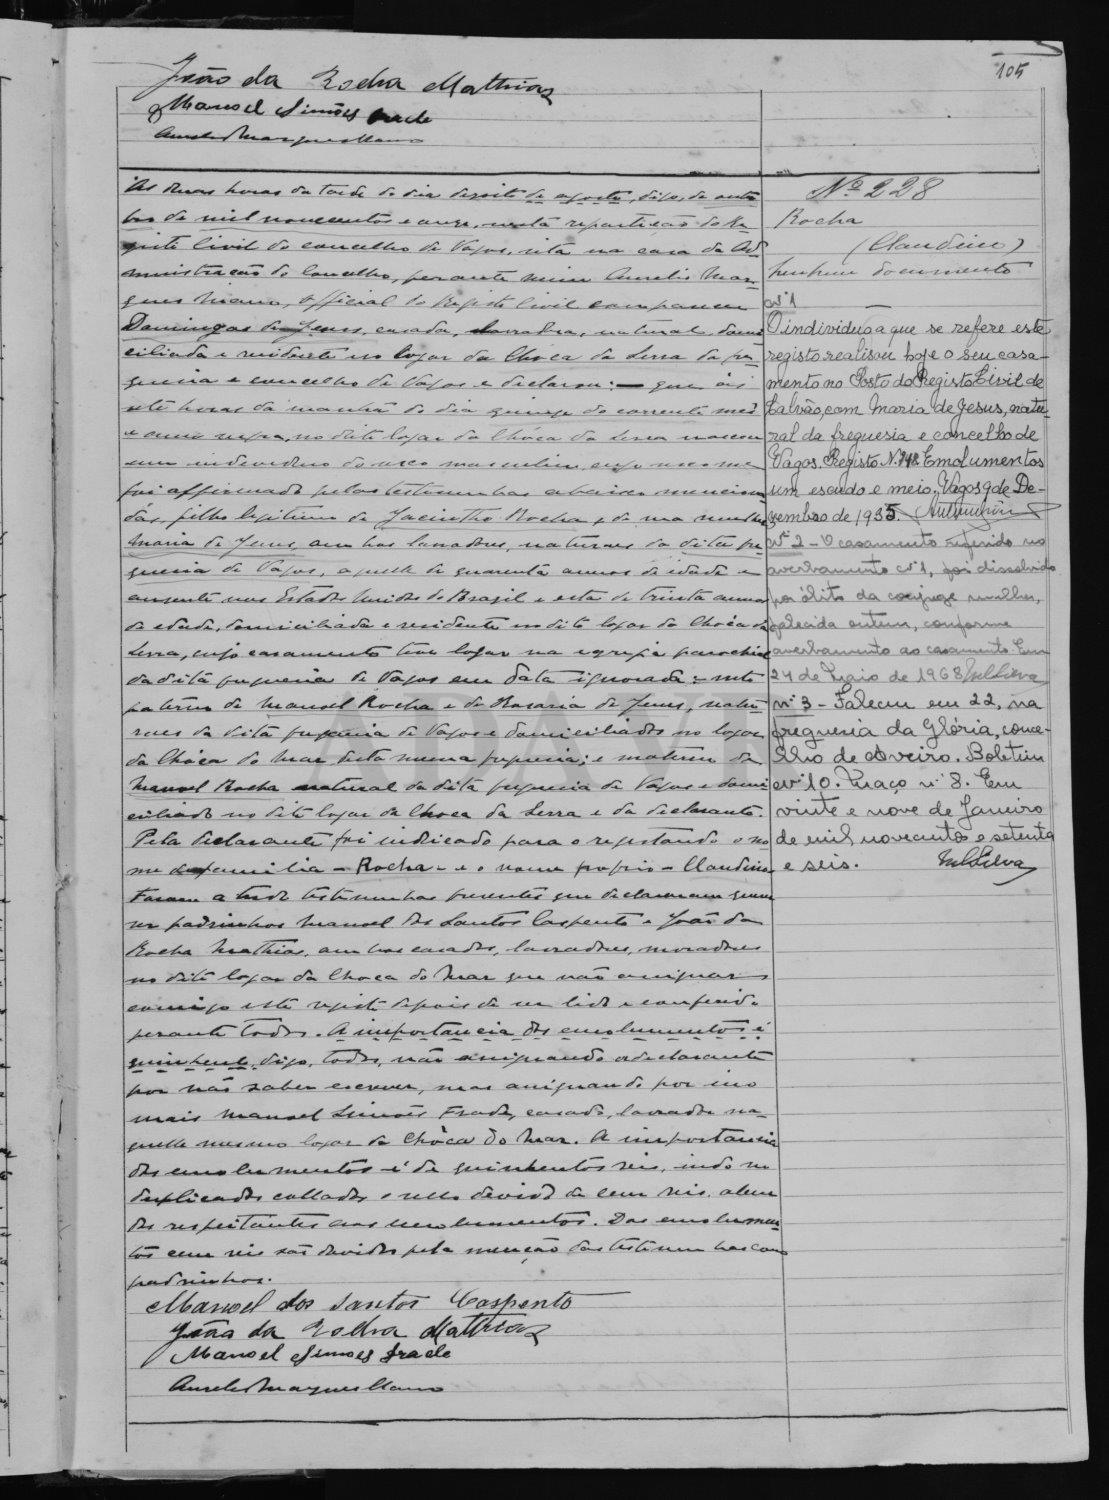 105
João da Rocha Mathias
Manoel Simões Frade
Aurelio Marques Mano
Nº 228
Rocha
(Claudino)
nenhum documento
nº 1
O individuo a que se refere este
registo realisou hoje o seu casa-
mento no Posto do Registo Civil de
Calvão, com Maria de Jesus, natu-
ral da freguesia e concelho de
Vagos. Registo N. Emolumentos
um escudo e meio. Vagos 9 de De-
zembro de 1935.
nº 2 - O casamento referido no
averbamento nº 1, foi dissolvido
por óbito da conjuge mulher,
falecida ontem, conforme
averbamento ao casamento. Em
24 de Maio de 1968
nº 3 - Faleceu em 22, na
freguesia da Glória, conce-
lho de Aveiro. Boletim
nº 10. Maço nº 8. Em
vinte e nove de Janeiro
de mil novecentos e setenta
e seis.
As duas horas da tarde do dia dezoito de agosto, digo, de outu-
bro de mil novecentos e onze, nesta repartição do Re-
gisto Civil do concelho de Vagos, sita na casa da Ad-
ministração do Concelho, perante mim Aurelio Mar-
ques Mano, official do Registo Civil compareceu
Domingas de Jesus, casada, lavradora, natural, domi-
ciliada e residente no logar da Choca da Serra da fre-
guesia e concelho de Vagos e declarou: — que ás
sete horas da manhã do dia quinze do corrente mez
e anno, no dito logar da Chóca da Serra nasceu
um individuo do sexo masculino, cujo sexo me
foi affirmado pelas testemunhas abaixo menciona-
das, filho legitimo de Jacintho Rocha e de sua mulher
Maria de Jesus, ambos lavradores, naturaes da dita fre-
guesia de Vagos, aquelle de quarenta annos de idade e
ausente nos Estados Unidos do Brazil e esta de trinta annos
de edade, domiciliada e residente no dito logar da Choca da
Serra, cujo casamento teve logar na egreja parochial
da dita freguesia de Vagos em data ignorada: neto
paterno de Manoel Rocha e de Rosaria de Jesus, natu-
raes da dita freguesia de Vagos e domiciliados no logar
da Chóca do Mar desta mesma freguesia; e materno de
Manoel Rocha natural da dita freguesia de Vagos e domi-
ciliado no dito logar da Choca da Serra e da declarante.
Pela declarante foi indicado para o registando o no-
me de familia — Rocha — e o nome proprio — Claudino
Foram a tudo testemunhas presentes que declararam querer
ser padrinhos Manoel dos Santos Caspento e João da
Rocha Mathias, ambos casados, lavradores, moradores
no dito logar da Choca do Mar que vão assignar
comigo este registo depois de ser lido e conferido
perante todos. A importancia dos emolumentos é
quinhentos, digo, todos, não assignando a declarante
por não saber escrever, mas assignando por isso
mais Manoel Simões Frade, casado, lavrador na-
quelle mesmo logar da Chóca do Mar. A importancia
dos emolumentos é de quinhentos reis, indo no
duplicado collado o sello devido de cem reis, alem
dos respeitantes aos emolumentos. Dos emolumen-
tos cem reis são devidos pela menção das testemunhas como
padrinhos.
Manoel dos Santos Caspento
João da Rocha Mathias
Manoel Simões Frade
Aurelio Marques Mano